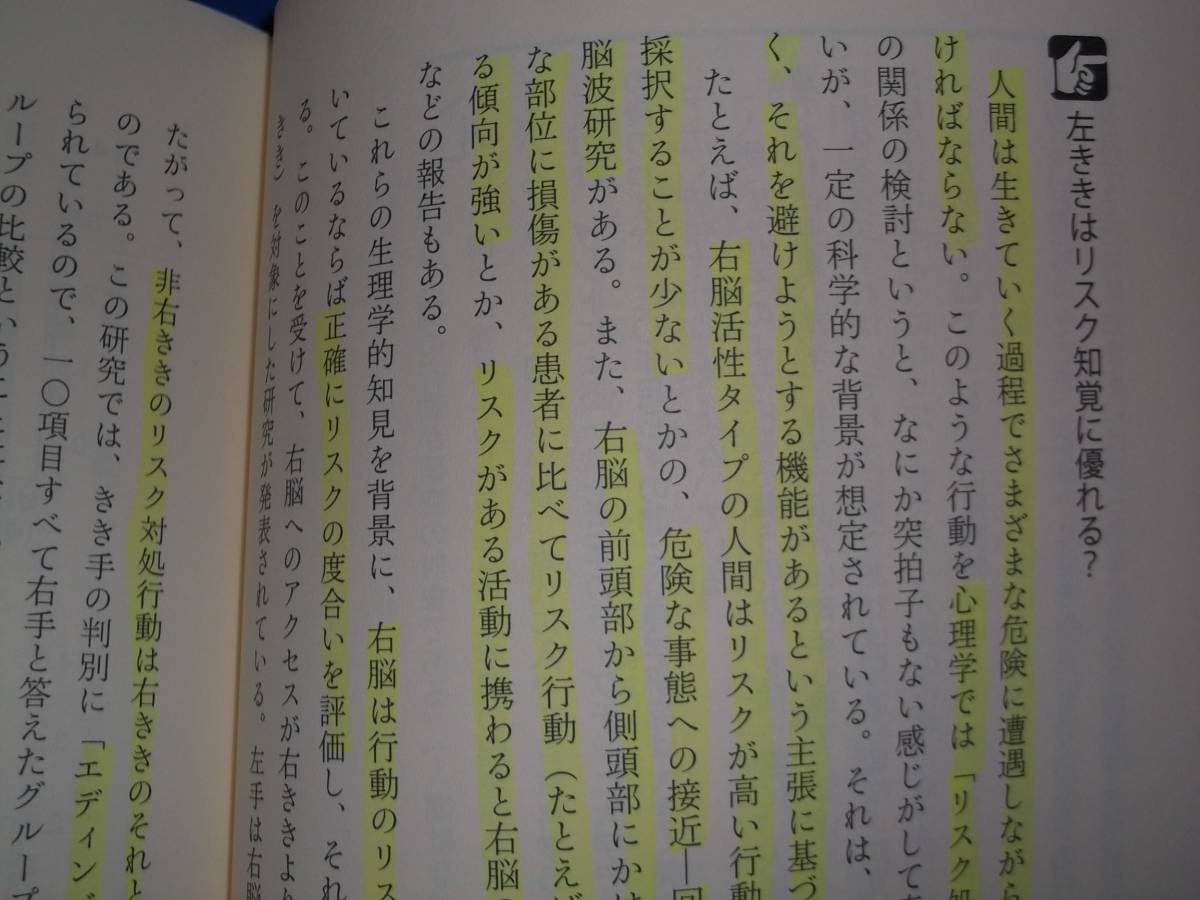 左ききはリスク知覚に優れる?
人間は生きていく過程でさまざまな危険に遭遇しながら
ければならない。このような行動を心理学では「リスク処
の関係の検討というと、なにか突拍子もない感じがして
いが、一定の科学的な背景が想定されている。それは、
く、それを避けようとする機能があるという主張に基づ
たとえば、右脳活性タイプの人間はリスクが高い行動
採択することが少ないとかの、危険な事態への接近―回
脳波研究がある。また、右脳の前頭部から側頭部にか
な部位に損傷がある患者に比べてリスク行動(たとえば
る傾向が強いとか、リスクがある活動に携わると右脳の
などの報告もある。
これらの生理学的知見を背景に、右脳は行動のリス
いているならば正確にリスクの度合いを評価し、それ
る。このことを受けて、右脳へのアクセスが右ききより
ききン を対象にした研究が発表されている。左手は右脳
たがって、非右ききのリスク対処行動は右ききのそれと
のである。この研究では、きき手の判別に「エディンバ
られているので、一〇項目すべて右手と答えたグループ
ループの比較という